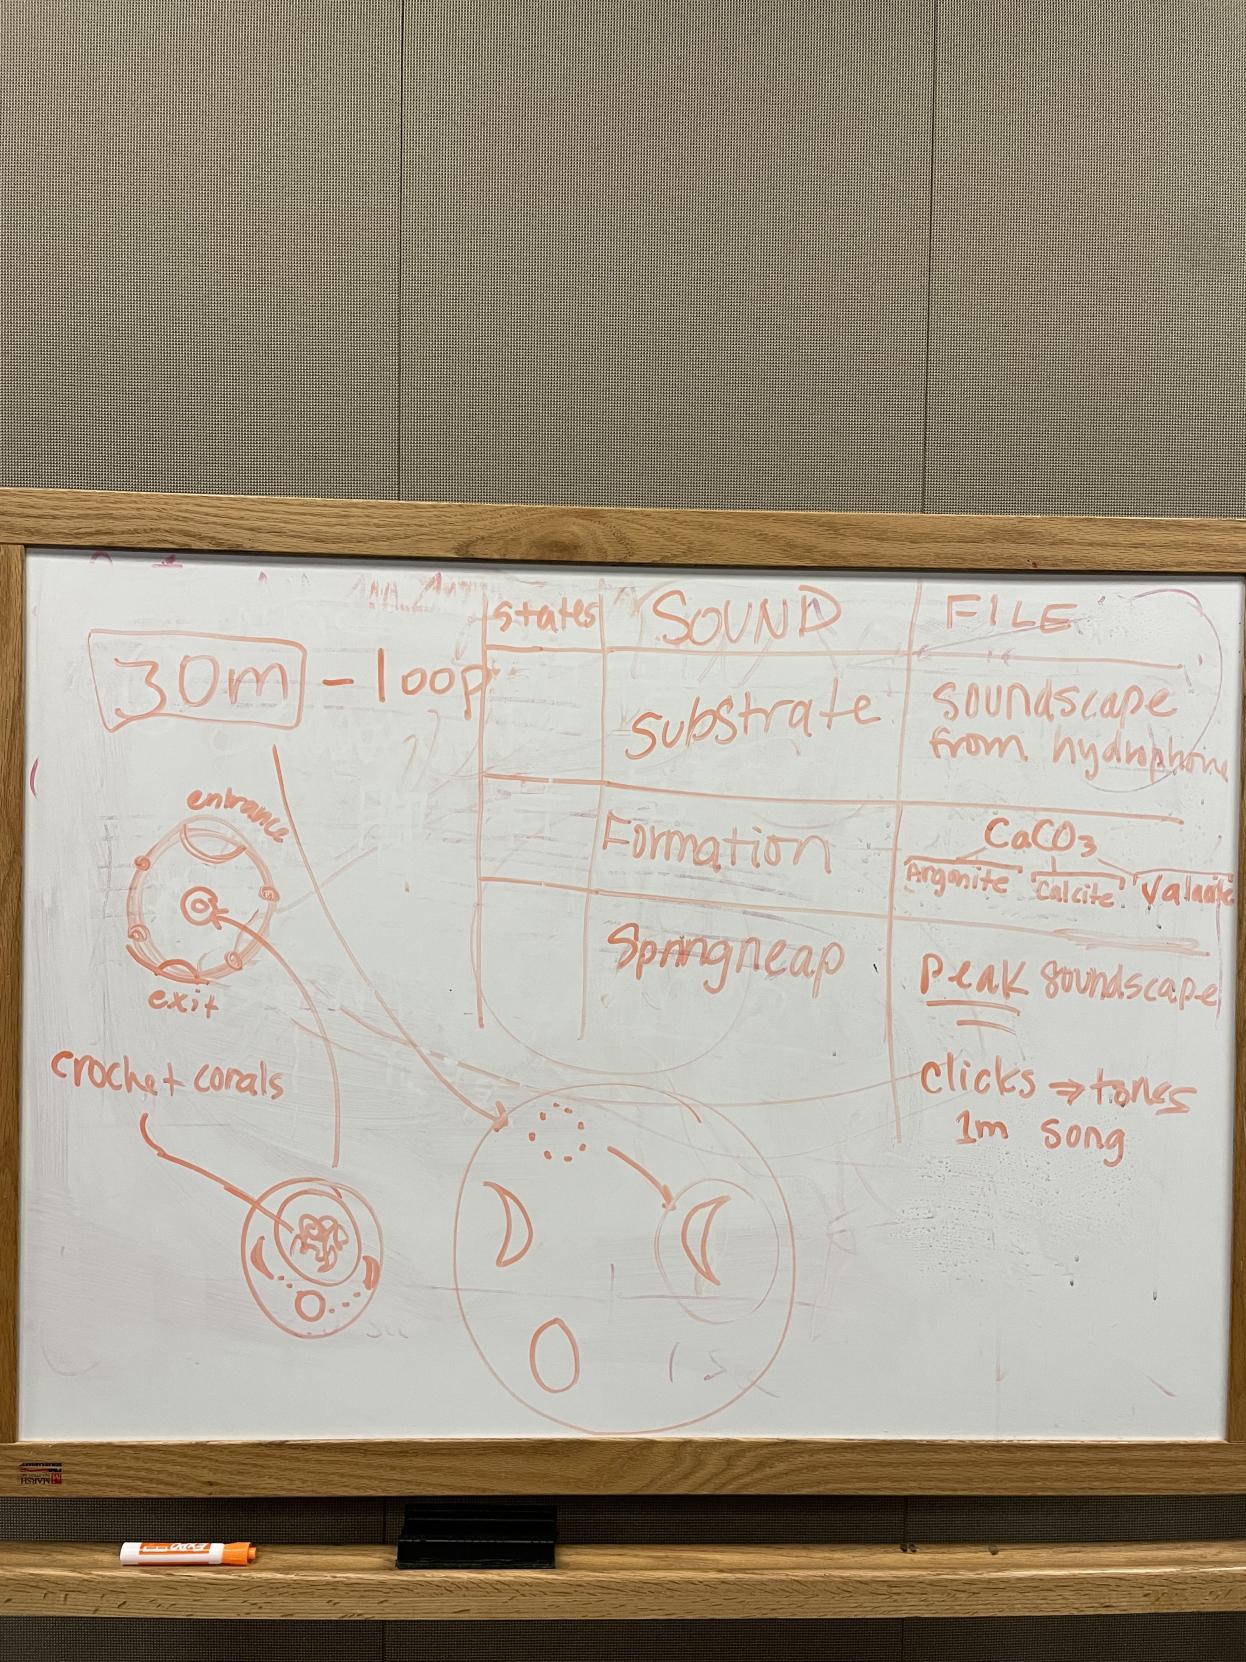 30m - loop
states SOUND FILE
Substrate soundscape
from hydrophone
Formation CaCO3
Argonite Calcite
Springneap Peak soundscape
clicks ⇒ tones
1m song
entrance
exit
crochet corals
MARSH
EXPO